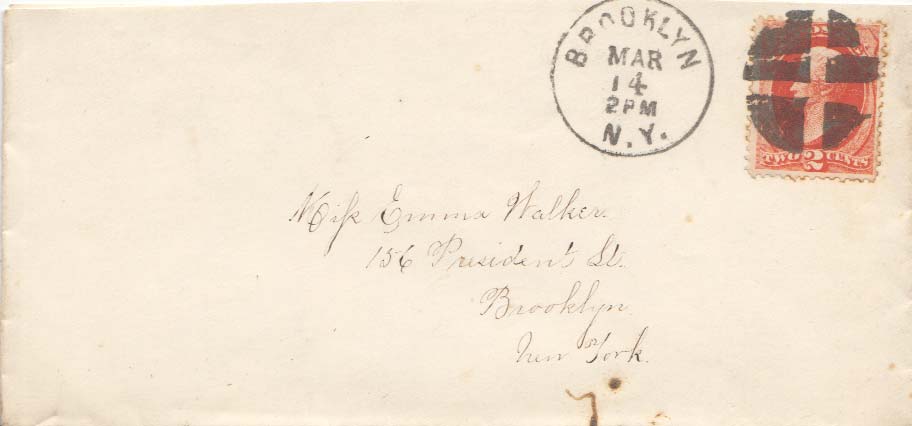 BROOKLYN
MAR
14
2PM
N.Y.
TWO 2 CENTS
Miſs Emma Walker.
156 President's St.
Brooklyn
New York.